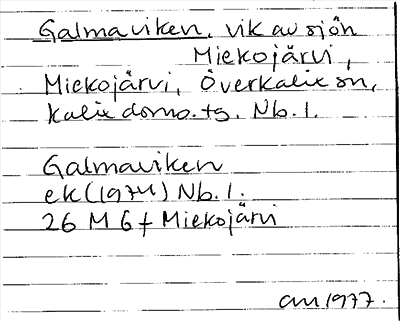 Galmaviken, vik av sjön
Miekojärvi,
Miekojärvi, Överkalix sn,
Kalix doms. tg. Nb. l.
Galmaviken
ek (1974) Nb. l.
26 M 6 f Miekojärvi
1977.